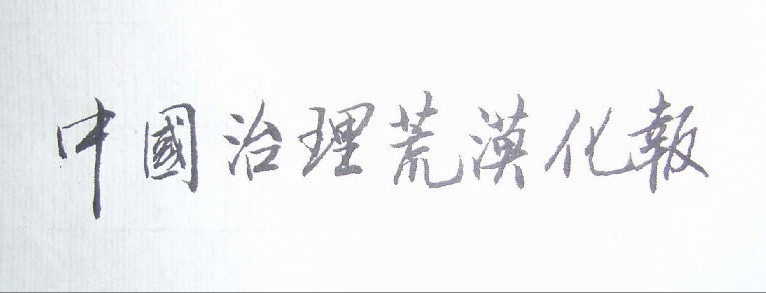 中國治理荒漠化報